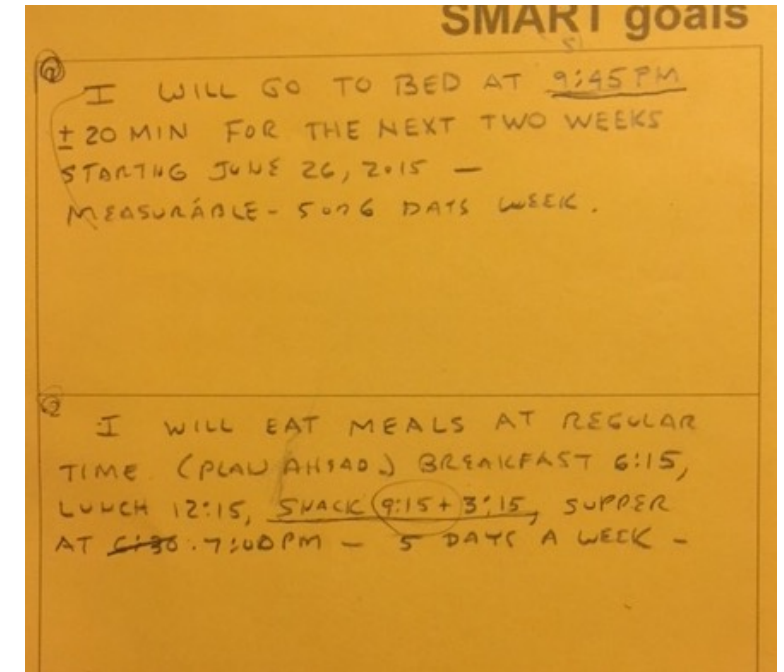 SMART goals
① I WILL GO TO BED AT 9:45 PM
± 20 MIN FOR THE NEXT TWO WEEKS
STARTING JUNE 26, 2015 —
MEASURABLE - 5 OR 6 DAYS WEEK.
② I WILL EAT MEALS AT REGULAR
TIME (PLAN AHEAD) BREAKFAST 6:15,
LUNCH 12:15, SNACK 9:15 + 3:15, SUPPER
AT 6:30 7:00 PM — 5 DAYS A WEEK —